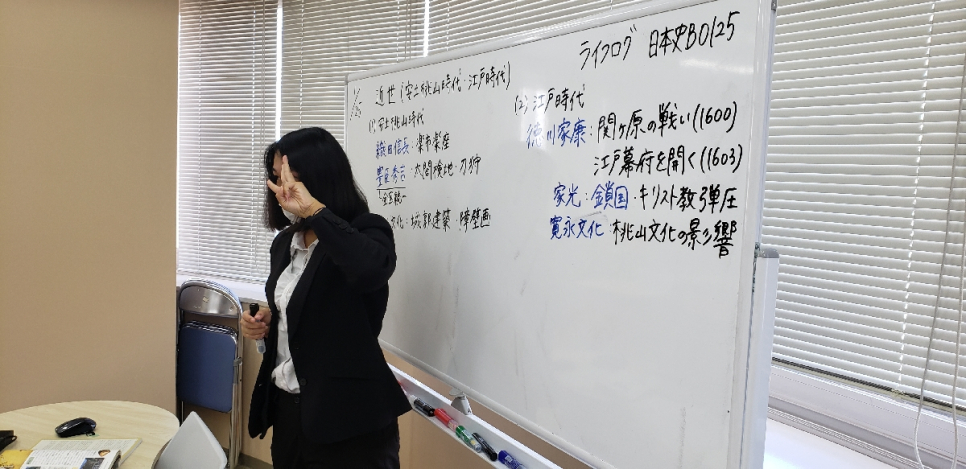 ライフログ 日本史B0125
1/25 近世(安土桃山時代・江戸時代)
(1)安土桃山時代
織田信長:楽市楽座
豊臣秀吉:太閤検地・刀狩
全国統一
文化:城郭建築・障壁画
(2)江戸時代
徳川家康:関ヶ原の戦い(1600)
江戸幕府を開く(1603)
家光:鎖国・キリスト教弾圧
寛永文化:桃山文化の影響